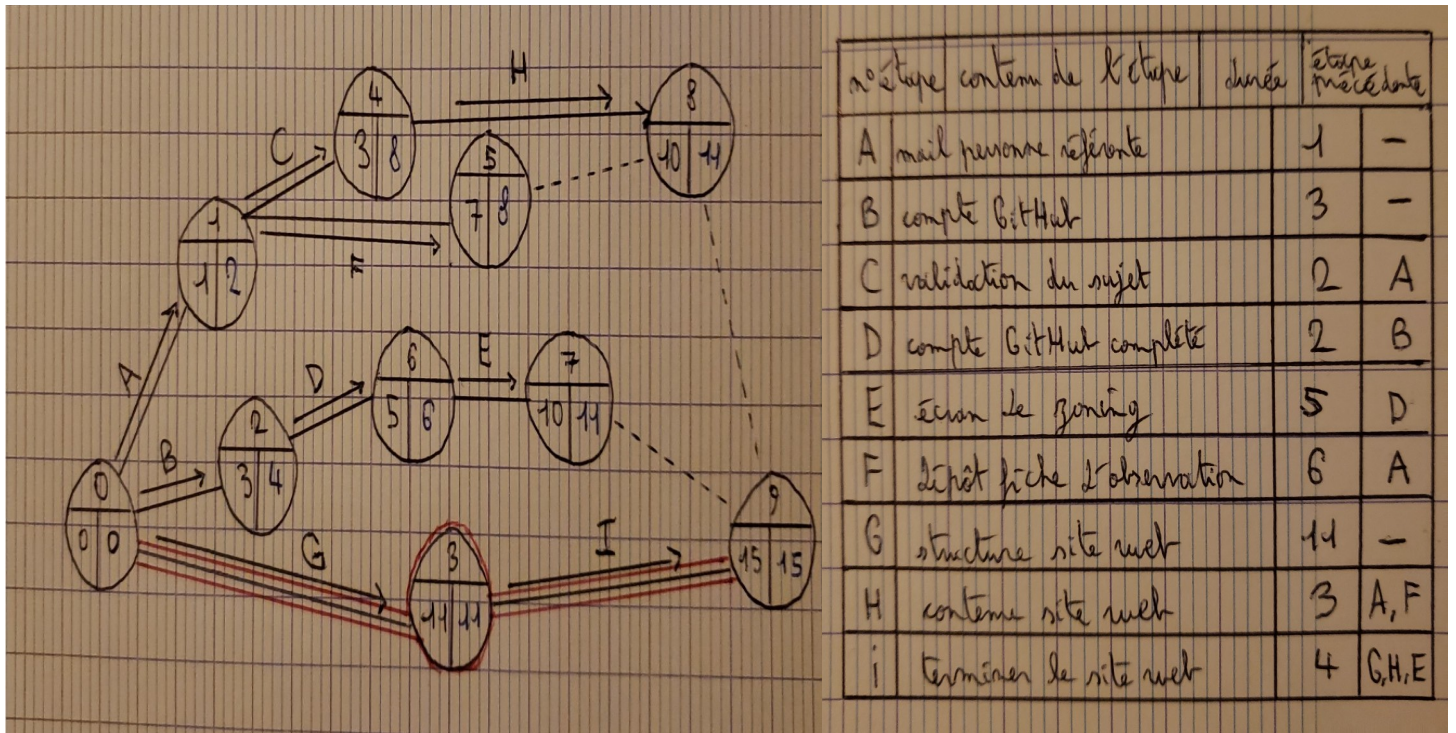 H
4
3 8
8
10 11
C
5
7 8
1
1 2
F
A
6
5 6
E
7
10 11
D
2
3 4
B
0
0 0
G
3
11 11
I
9
15 15
n° étape contenu de l'étape durée étape précédente
A mail personne référente 1 -
B compte GitHub 3 -
C validation du sujet 2 A
D compte GitHub complété 2 B
E écran de zoning 5 D
F dépôt fiche d'observation 6 A
G structure site web 11 -
H contenu site web 3 A, F
i terminer le site web 4 G, H, E